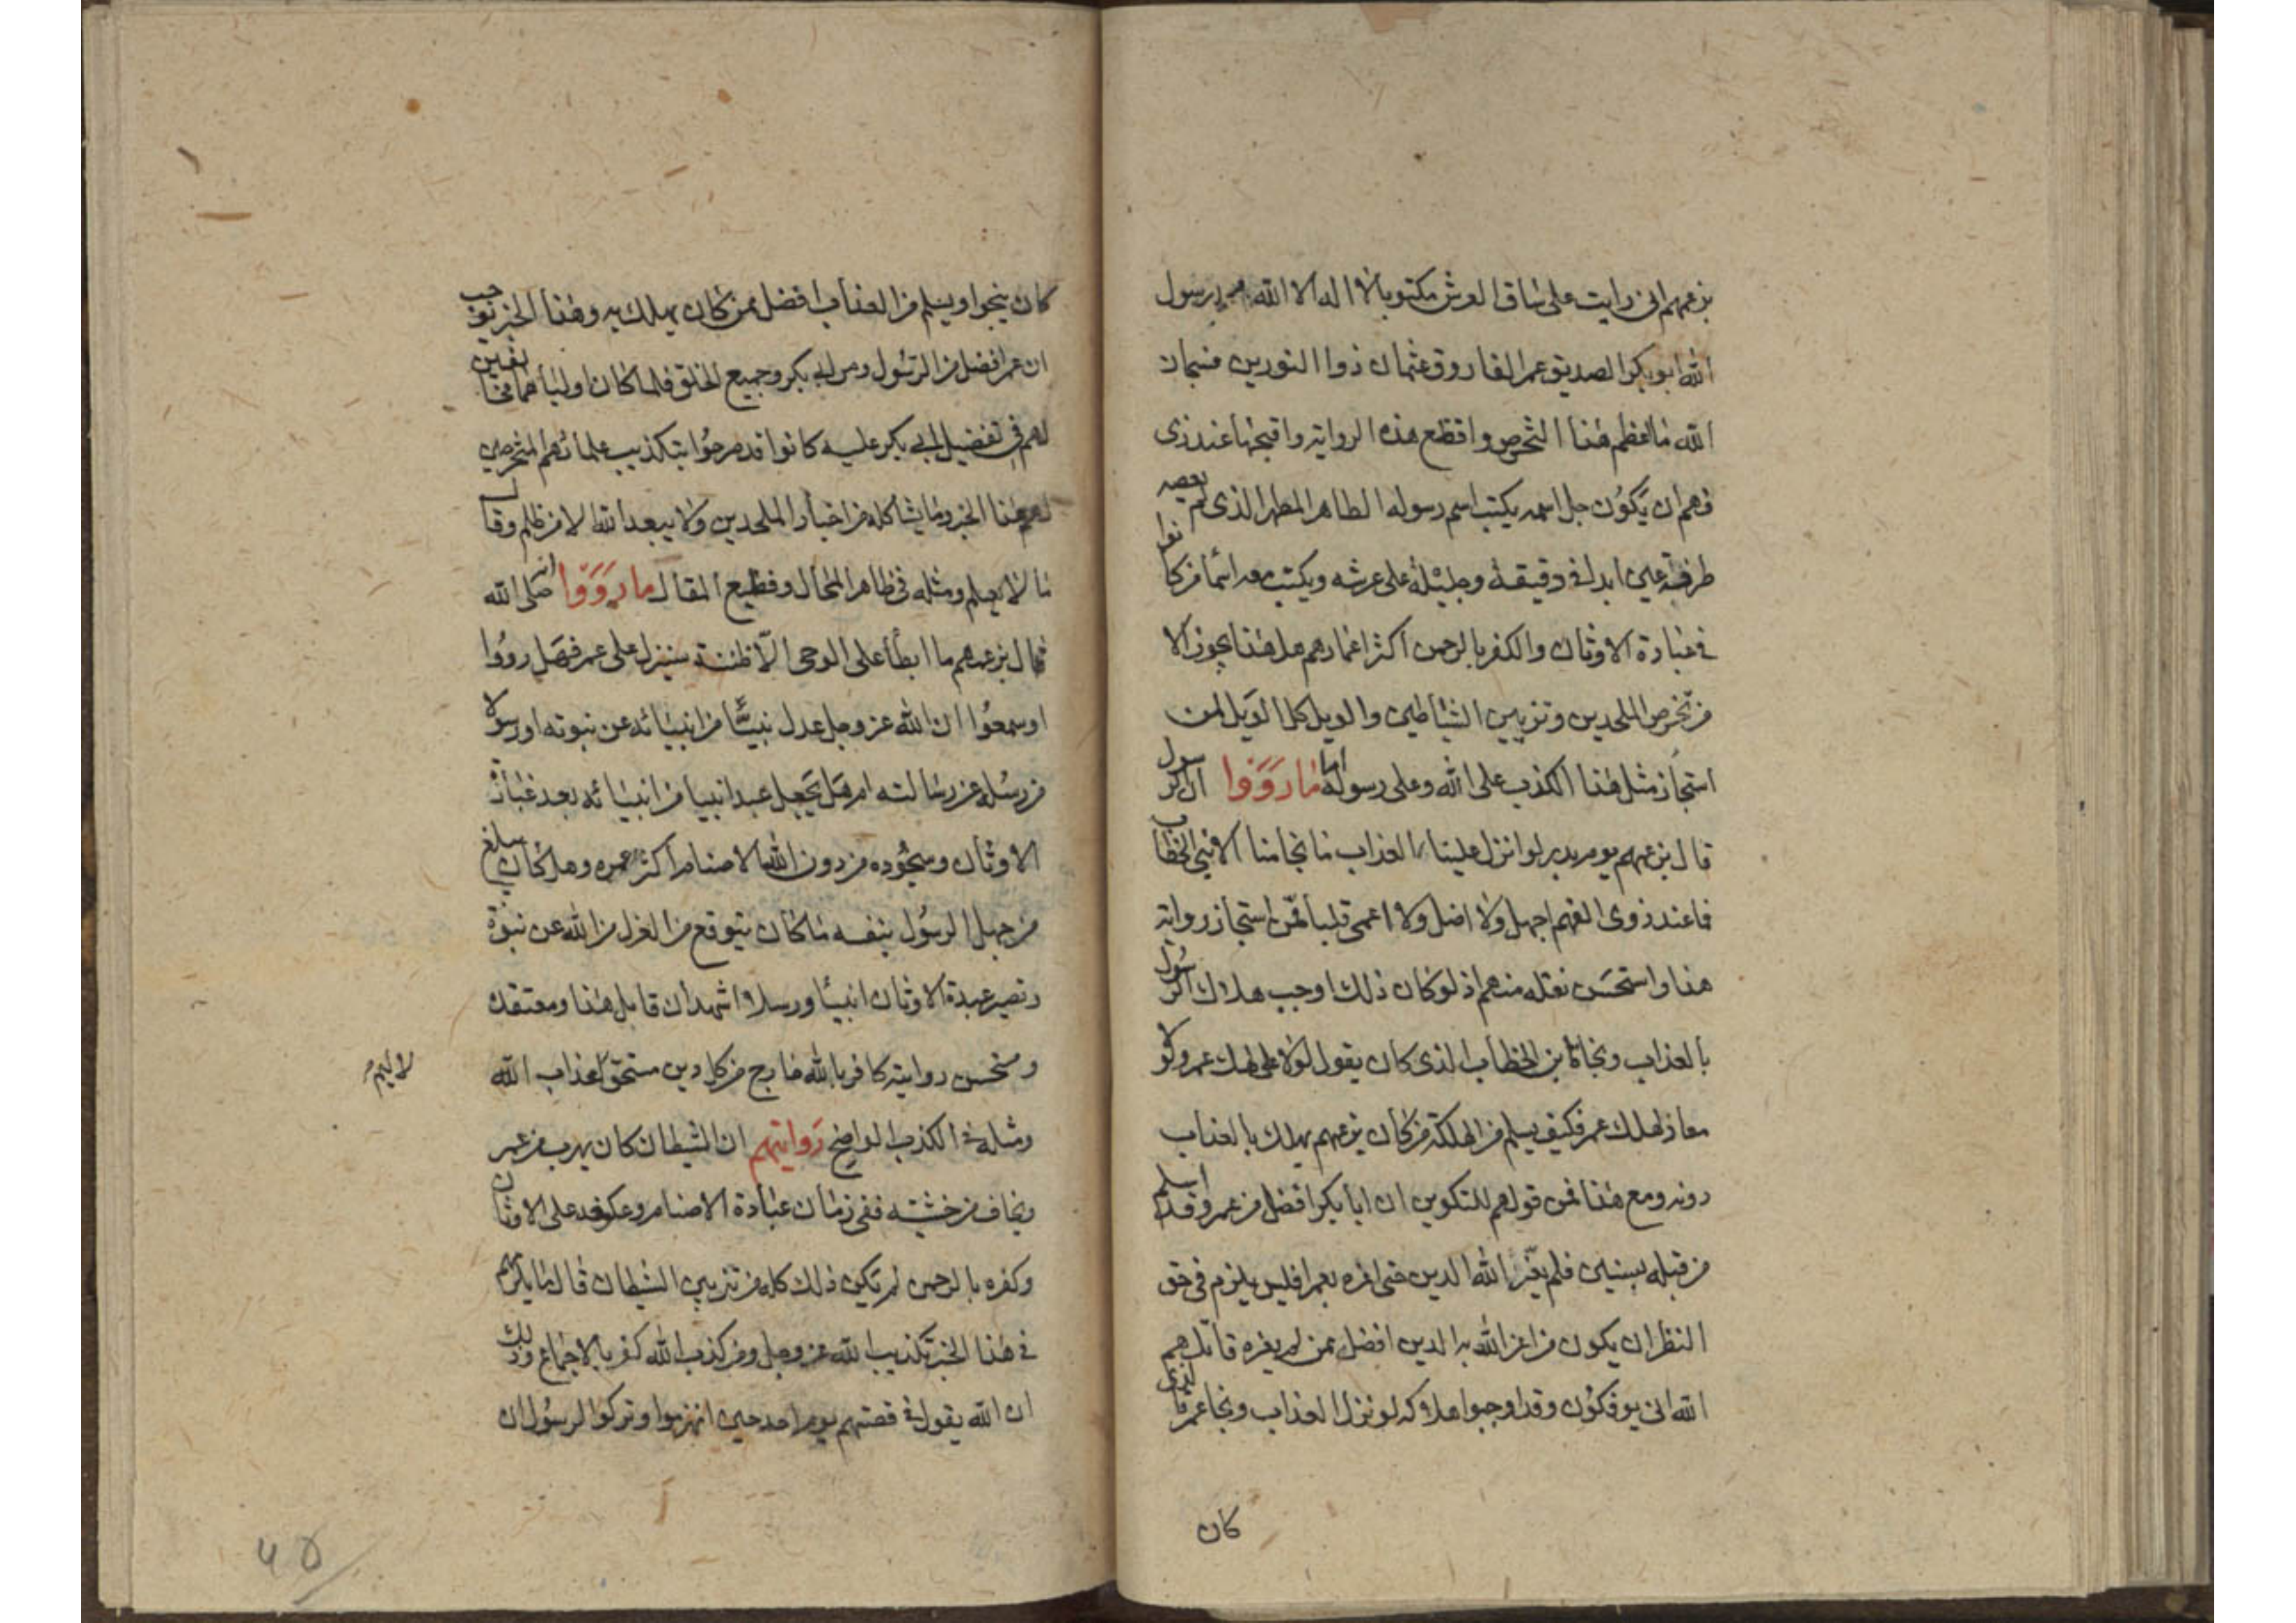 بزعمهم انى رايت على ساق العرش مكتوبا لا اله الا الله محمد رسول
الله ابو بكر الصديق عمر الفاروق عثمان ذوا النورين فسبحان
الله ما اعظم هذا التخرص وافظع هذه الرواية واقبحها عند ذى
فهم ان يكون جل اسمه يكتب اسم رسوله الطاهر المطهر الذى لم يعصه
طرفة عين ابدا فى دقيقة وجليلة على عرشه ويكتب معه اسما من كانوا
فى عبادة الاوثان والكفر بالرحمن اكثر اعمارهم هل هذا يجوز الا
من تخرص الملحدين وتزيين الشياطين والويل كل الويل لمن
استجاز مثل هذا الكذب على الله وعلى رسوله ما رووا ان الرسول
قال بزعمهم يوم بدر لو انزل علينا العذاب ما نجا منا الا بنى الخطاب
فما عند ذوى الفهم اجهل ولا اضل ولا اعمى قلبا ممن استجاز رواية
هذا واستحسن نقله منهم اذ لو كان ذلك اوجب هلاك الرسول
بالعذاب ونجاة بن الخطاب الذى كان يقول لولا على لهلك عمر ولولا
معاذ لهلك عمر فكيف يسلم من الهلكة من كان بزعمهم يهلك بالعذاب
دونه ومع هذا فمن قولهم ان ابا بكر افضل من عمر وقد اسلم
من قبله بسنين فلم يعز الله الدين حتى اعزه بعمر افليس يلزم فى حق
النظر ان يكون من اعز الله به الدين افضل ممن لم يعزه قاتلهم
الله انى يوفكون وقد اوجبوا هلاكه لو نزل العذاب ونجا عمر
كان
كان ينجوا ويسلم من العذاب افضل ممن كان يهلك به وهذا الخبر يوجب
ان عمر افضل من الرسول ومن ابى بكر وجميع الخلق فلما كان اوليا هما مخالفين
لهم فى تفضيل ابى بكر عليه كانوا قد صرحوا بتكذيب علمائهم المتخرصين
لهم هذا الخبر وما يشاكله من اخبار الملحدين ولا يبعد الله الا من ظلم وقال
ما لا يعلم ومثله فى ظاهر المحال وفظيع المقال ما رووا انه صلى الله
قال بزعمهم ما ابطأ على الوحى الا ظننته سينزل على عمر فهل رووا
او سمعوا ان الله عز وجل عدل نبيا من انبيائه عن نبوته او رسولا
من رسله عن رسالته ام هل يجعل عبدا نبيا من انبيائه بعد عبادة
الاوثان وسجوده من دون الله للاصنام اكثر عمره وهل كان يبلغ
من جهل الرسول بنفسه ما كان يتوقع من العزل من الله عن نبوة
وتصير عبدة الاوثان انبيا ورسلا اشهد ان قايل هذا ومعتقده
ومستحسن روايته كافر بالله خارج من كل دين مستحق لعذاب الله
ومثله فى الكذب الواضح روايتهم ان الشيطان كان يهرب من عمر
ويخاف من خشيته ففى زمان عبادة الاصنام وعكوفه على الاوثان
وكفره بالرحمن لم يكن ذلك كله من تزيين الشيطان قال
فى هذا الخبر تكذيب الله عز وجل ومن كذب الله كفر بالاجماع وذلك
ان الله يقول فى قصتهم يوم احد حين انهزموا وتركوا الرسول ان